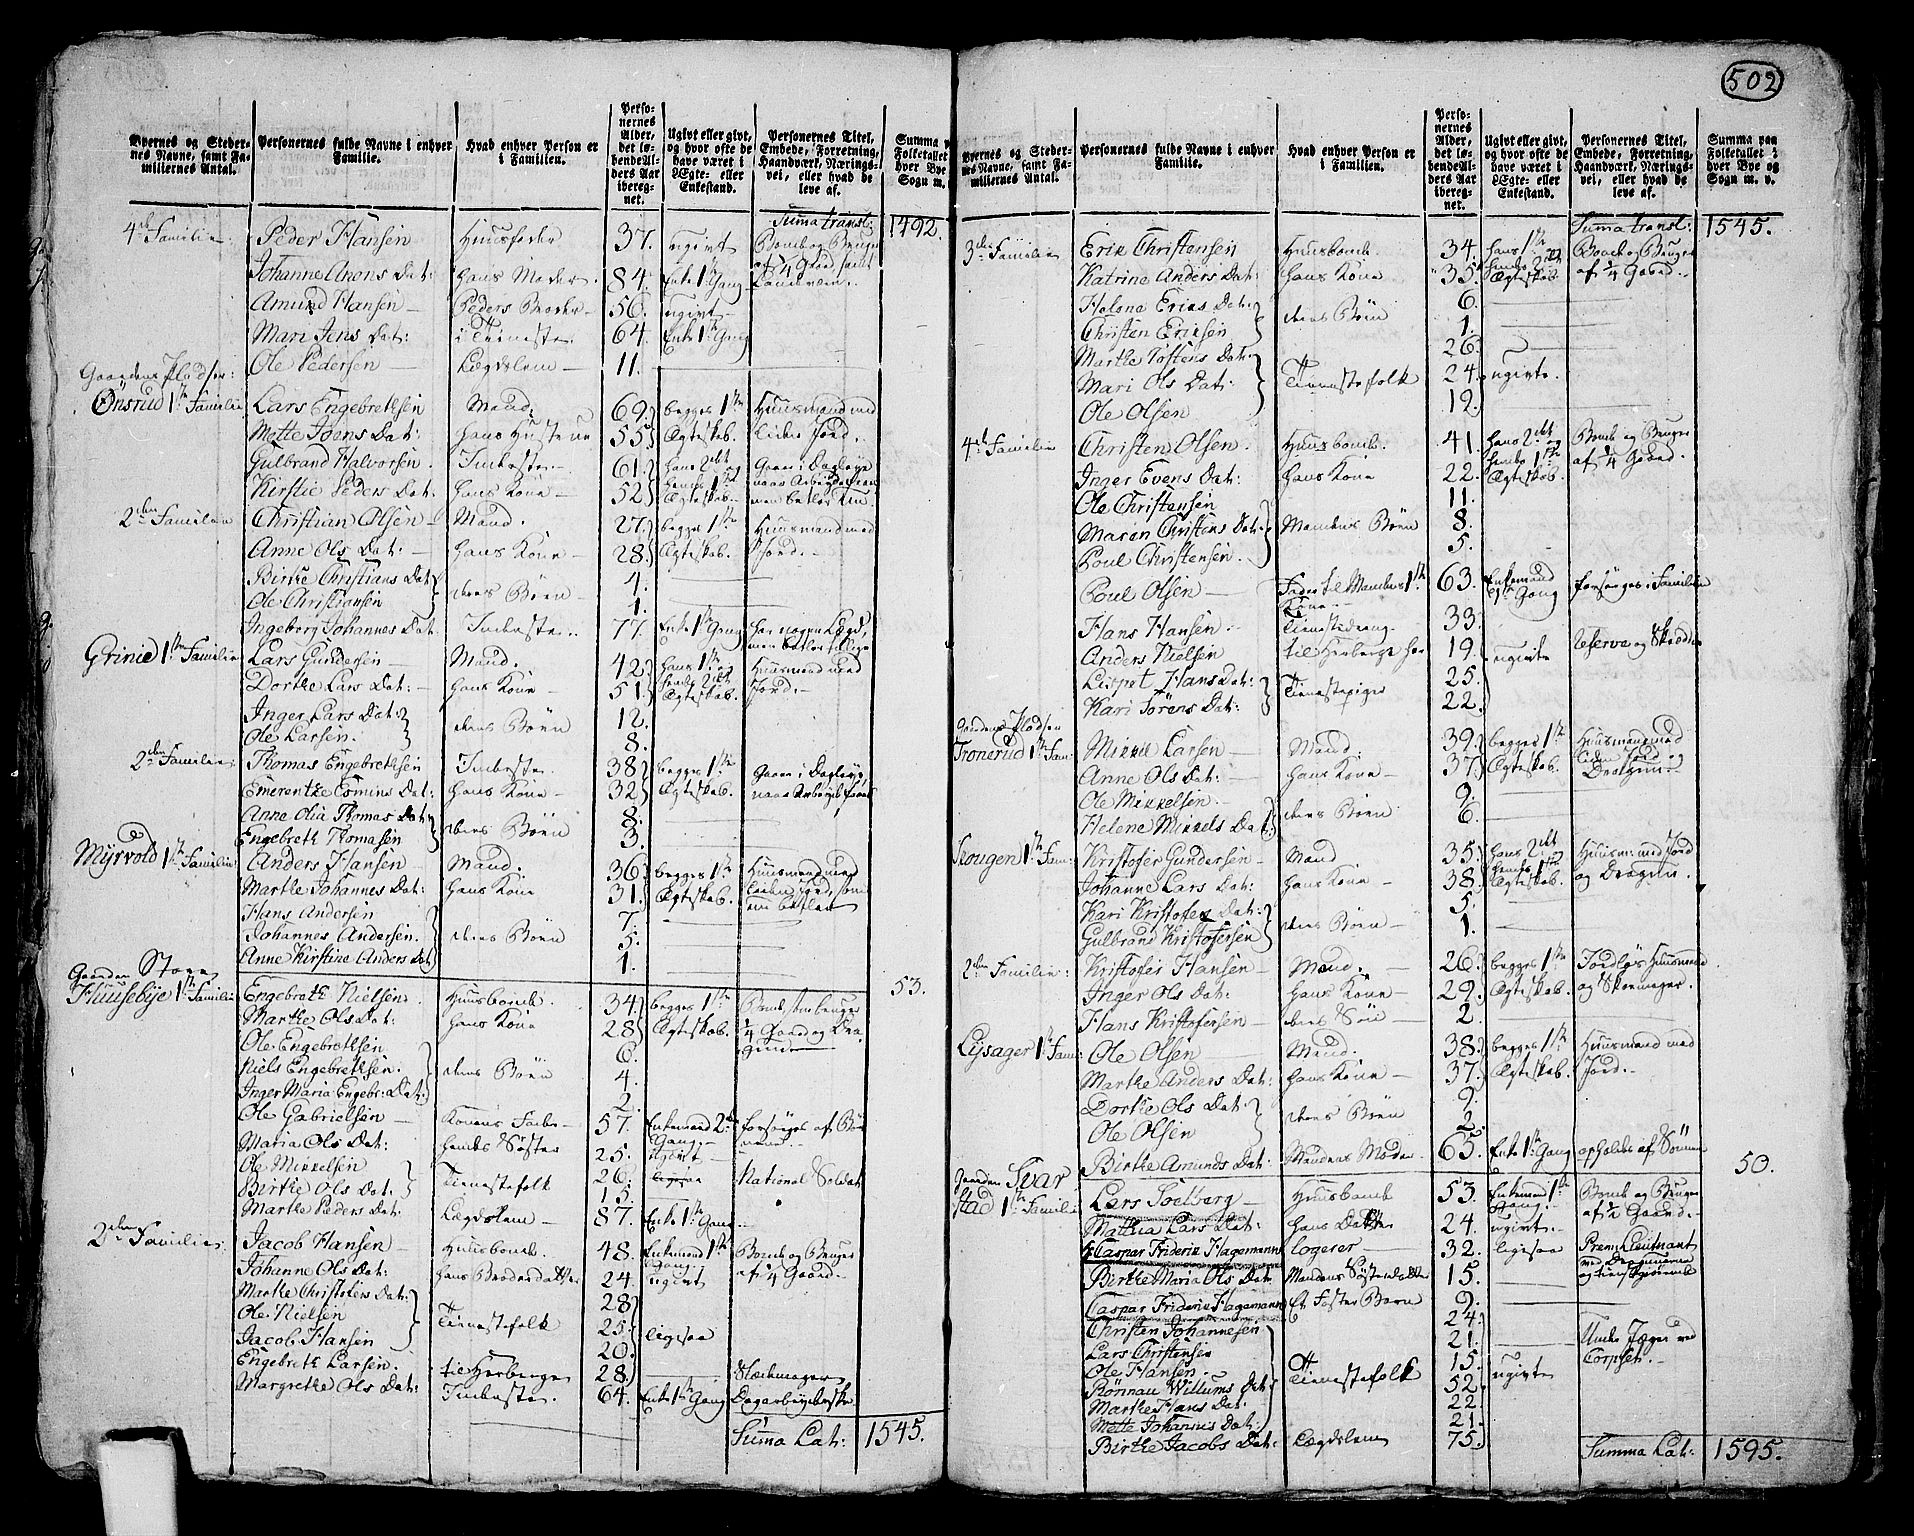 502
Byernes og Stedernes Navne, samt Familiernes Antal.
Personernes fulde Navne i enhver Familie.
Hvad enhver Person er i Familien.
Personernes Alder, det løbende Alders Aar iberegnet.
Ugivt eller givt, og hvor ofte de have været i Ægte- eller Enkestand.
Personernes Titel, Embede, Forretning, Haandværk, Næringsvei, eller hvad de leve af.
Summa
Folketallet
hver Bye
Sogn m.
Suma transl: 1492.
4de Familie: Peder Hansen Huusfader 37. ugivt Bonde og Bruger af 1/4 Gaard samt
Johanne Arons Dat: hans Moder 84. Enke 1te Gang
Amund Hansen Peders Broder 56. ugivt
Mari Jens Dat: i Tieneste 64. Enke 1te Gang
Ole Pedersen Lægdslem 11.
Gaardens Pladser:
Ønsrud 1te Familie Lars Engebrethsen Mand 69. begges 1te Huusmand med
Mette Joens Dat: hans Hustrue 55. Ægteskab. liden Jord.
Gulbrand Halvorsen Inderster 61. hans 2det og Gaar i Dagleje
Kirstie Peders Dat: hans Kone 52. hendes 1te Ægteskab.
2den Familie Christian Olsen Mand. 27. begges 1te Huusmand med
Anne Ols Dat: hans Kone 28. Ægteskab. Jord.
Birthe Christians Dat: deres Børn 4.
Ole Christiansen 1.
Ingeborg Johannes Dat: Inderster. 77. Enke 1te Gang har nogen Lægd, men betler tillige
Grinie 1te Familie Lars Gundersen Mand. 42. hans 1te og Huusmand med
Dorthe Lars Dat: hans Kone 51. hendes 2det Ægteskab. Jord.
Inger Lars Dat: deres Børn 12.
Ole Larsen. 8.
2den Familie: Thomas Engebrethsen Inderste 38. begges 1te Gaar i Dagleje
Emerentze Esmius Dat: hans Kone 32. Ægteskab.
Anne Olia Thomas Dat: deres Børn 8.
Engebreth Thomasen 3.
Myrvold 1te Familie Anders Hansen Mand. 36. begges 1te Huusmand med
Marthe Johannes Dat: hans Kone 31. Ægteskab. liden Jord
Hans Andersen 7.
Johannes Andersen. deres Børn 5.
Anne Kirstine Anders Dat: 1.
53.
Gaarden Store
Huusebye 1te Familie Engebreth Nielsen Huusbonde. 34. begges 1te Bonde, som bruger
Marthe Ols Dat: hans Kone 28. Ægteskab. 1/4 Gaard og Dragun
Ole Engebrethsen 6.
Niels Engebrethsen. deres Børn 4.
Inger Maria Engebr: Dat: 2.
Ole Gabrielsen Konens Fader 57. Enkemand 2den Gang. forsørges af
Maria Ols Dat: hendes Søster 25. ugivt
Ole Mikkelsen Tienestefolk 26. ligesaa National Soldat
Birthe Ols Dat: 15.
Marthe Peders Dat: Lægdslem 87. Enke 1te Gang
2den Familie: Jacob Hansen Huusbonde. 48. Enkemand 1te Gang Bonde og Bruger
Johanne Ols Dat: hans Broderdatter 24. ugivt af 1/4 Gaard.
Marthe Christofers Dat: 28
Ole Nielsen Tienestefolk 25. ligesaa
Jacob Hansen 20.
Engebreth Larsen. til Herberge 28.
Margrethe Ols Dat: Inderster 64. Enke 1te Gang
Suma Lat: 1545.
Byernes og Stedernes Navne, samt Familiernes Antal.
Personernes fulde Navne i enhver Familie.
Hvad enhver Person er i Familien.
Personernes Alder, det løbende Alders Aar iberegnet.
Ugivt eller givt, og hvor ofte de have været i Ægte- eller Enkestand.
Personernes Titel, Embede, Forretning, Haandværk, Næringsvei, eller hvad de leve af.
Summa paa Folketallet i hver Bye og Sogn m. v.
Suma transl: 1545.
3die Familie Erik Christensen Huusbonde 34. hans 1te Bonde og Bruger
Katrine Anders Dat: hans Kone 35. hendes 2det Ægteskab af 1/4 Gaard.
Helene Eries Dat: deres Børn 6.
Christen Eriksen 1.
Marthe Tostens Dat: 26.
Mari Ols Dat: Tienestefolk 24. ugivte.
Ole Olsen 12.
4de Familie Christen Olsen Huusbonde. 41. hans 2det og Bonde og Bruger
Inger Evens Dat: hans Kone 22. hendes 1te Ægteskab. af 1/4 Gaard.
Ole Christensen 11.
Maren Christens Dat: Mandens Børn 8.
Poul Christensen. 5.
Poul Olsen Fader til Mandens 1te Kone 63. Enkemand 1te Gang forsørges i Familien
Hans Hansen Tienestedreng 33.
Anders Nielsen til Herberge her 19. ugivte Reserve og Skrædder
Lispet Hans Dat: Tienestepiger 25.
Kari Sørens Dat: 22.
Gaardens Pladser
Tronerud 1te Fam: Mikkel Larsen Mand. 39. begges 1te Huusmand med
Anne Ols Dat: hans Kone 37. Ægteskab. liden Jord og Dragun.
Ole Mikkelsen. deres Børn 9.
Helene Mikkels Dat: 6.
Scougen 1te Fam: Kristofer Gundersen Mand 35. hans 2det Huusm: med Jord
Johanne Lars Dat: hans Kone 38. hendes 1te Ægteskab. og Dragun.
Kari Kristofers Dat: deres Børn 5.
Gulbrand Kristofersen 1.
2den Familie: Kristofer Hansen Mand. 26. begges 1te Jordløs Huusmand
Inger Ols Dat: hans Kone 29. Ægteskab. og Skoemager.
Hans Kristofersen deres Søn 2.
Lysager 1te Fam: Ole Olsen Mand. 38. begges 1te Huusmand med
Marthe Anders Dat: hans Kone 37. Ægteskab. Jord.
Dorthe Ols Dat: deres Børn 9.
Ole Olsen 2.
Birthe Amunds Dat: Mandens Moder 65. Enke 1te Gang opholdes af Sønnen
50.
Gaarden Svarstad 1te Familie Lars Soelberg Huusbonde 53. Enkemand 1te Gang Bonde og Bruger
Mathia Lars Dat: hans Datter 24. ugivt af 1/2 Gaard.
Caspar Friderik Hagemann logerer 32. ligesaa Prem: Lieutnant
Birthe Maria Ols Dat: Mandens Søsterdatter 15.
Caspar Friderik Hagemann et Foster Barn 9.
Christen Johannesen 24.
Lars Christensen 21. Jæger ved
Ole Hansen. Tienestefolk 15. ugivte Corpset.
Rønnau Willums Dat: 52.
Marthe Hans Dat. 22.
Mette Johannes Dat: 21.
Birthe Jacobs Dat: Lægdslem 75.
Summa Lat: 1595.